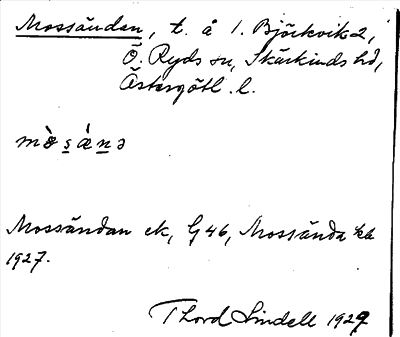 Mossändan, t. å 1. Björkvik 2,
Ö. Ryds sn, Skärkinds hd,
Östergötl. l.
mòsǻnə
Mossändan ek, G 46, Mossända kb
1927.
Thord Lindell 1927